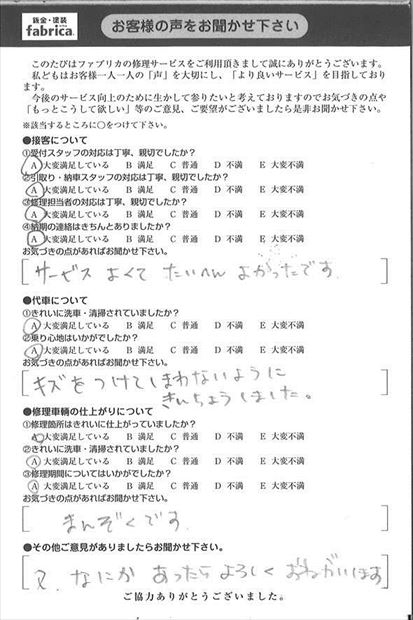 鈑金・塗装
fabrica.
お客様の声をお聞かせ下さい
このたびはファブリカの修理サービスをご利用頂きまして誠にありがとうございます。
私どもはお客様一人一人の「声」を大切にし、「より良いサービス」を目指しており
ます。
今後のサービス向上のために生かして参りたいと考えておりますのでお気づきの点や
「もっとこうして欲しい」等のご意見、ご要望がございましたら是非お聞かせ下さい。
※該当するところに○をつけて下さい。
●接客について
①受付スタッフの対応は丁寧、親切でしたか?
A 大変満足している B 満足 C 普通 D 不満 E 大変不満
②引取り・納車スタッフの対応は丁寧、親切でしたか?
A 大変満足している B 満足 C 普通 D 不満 E 大変不満
③修理担当者の対応は丁寧、親切でしたか?
A 大変満足している B 満足 C 普通 D 不満 E 大変不満
④納期の連絡はきちんとありましたか?
A 大変満足している B 満足 C 普通 D 不満 E 大変不満
お気づきの点があればお聞かせ下さい。
サービス よくて たいへん よかったです。
●代車について
①きれいに洗車・清掃されていましたか?
A 大変満足している B 満足 C 普通 D 不満 E 大変不満
②乗り心地はいかがでしたか?
A 大変満足している B 満足 C 普通 D 不満 E 大変不満
お気づきの点があればお聞かせ下さい。
キズをつけてしまわないように
きんちょうしました。
●修理車輌の仕上がりについて
①修理箇所はきれいに仕上がっていましたか?
A 大変満足している B 満足 C 普通 D 不満 E 大変不満
②きれいに洗車・清掃されていましたか?
A 大変満足している B 満足 C 普通 D 不満 E 大変不満
③修理期間についてはいかがでしたか?
A 大変満足している B 満足 C 普通 D 不満 E 大変不満
お気づきの点があればお聞かせ下さい。
まんぞくです。
●その他ご意見がありましたらお聞かせ下さい。
又、なにか あったら よろしく おねがいします
ご協力ありがとうございました。